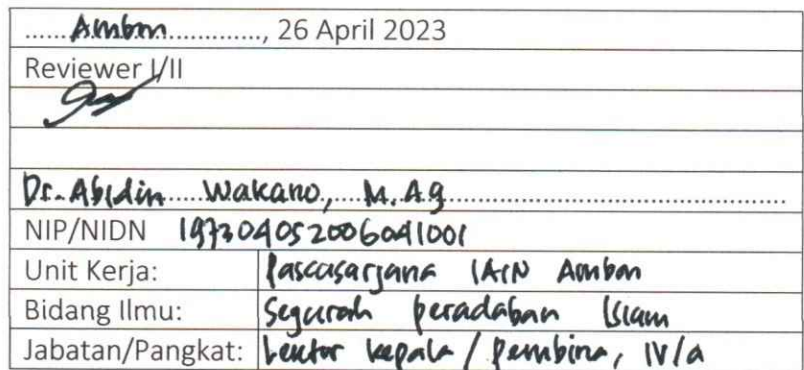 ......Ambon.............., 26 April 2023
Reviewer I/II
Dr. Abidin.....Wakano,....M.Ag...............................................
NIP/NIDN 197304052006041001
Unit Kerja: Pascasarjana IAIN Ambon
Bidang Ilmu: Sejarah peradaban Islam
Jabatan/Pangkat: Lektor kepala / pembina, IV/a